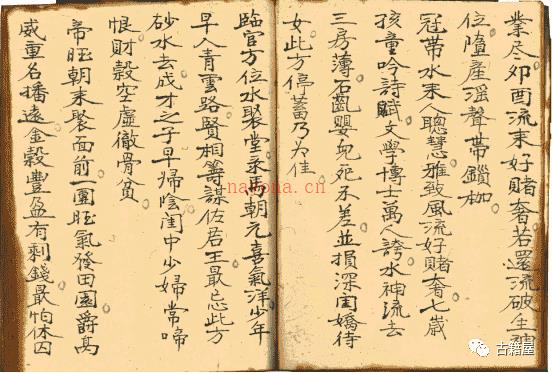 業尽卯酉流來好賭奢若還流破生神
位墮產淫聲帶鎖枷
冠帶水來人聰慧雅致風流好賭奢七歲
孩童吟詩賦文學博士萬人誇水神流去
三房薄石齓嬰兒死不差並損深閨嬌待
女此方停蓄乃为佳
臨官方位水聚堂禄馬朝元喜氣洋少年
早入青雲路賢相籌謀佐君王最忌此方
砂水去成才之子早歸陰閨中少婦常啼
恨財穀空虛徹骨貧
帝旺朝來聚面前一團旺氣發田園爵高
威重名播遠金穀豐盈有剩錢最怕休囚
古籍屋